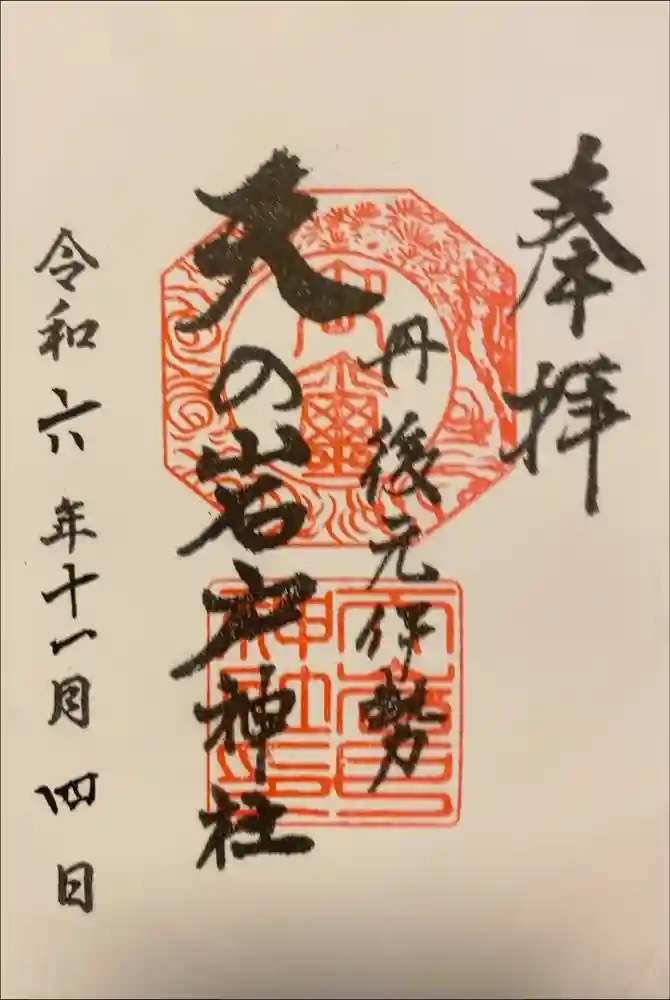 奉拝
丹後元伊勢
天の岩戸神社
令和六年十一月四日